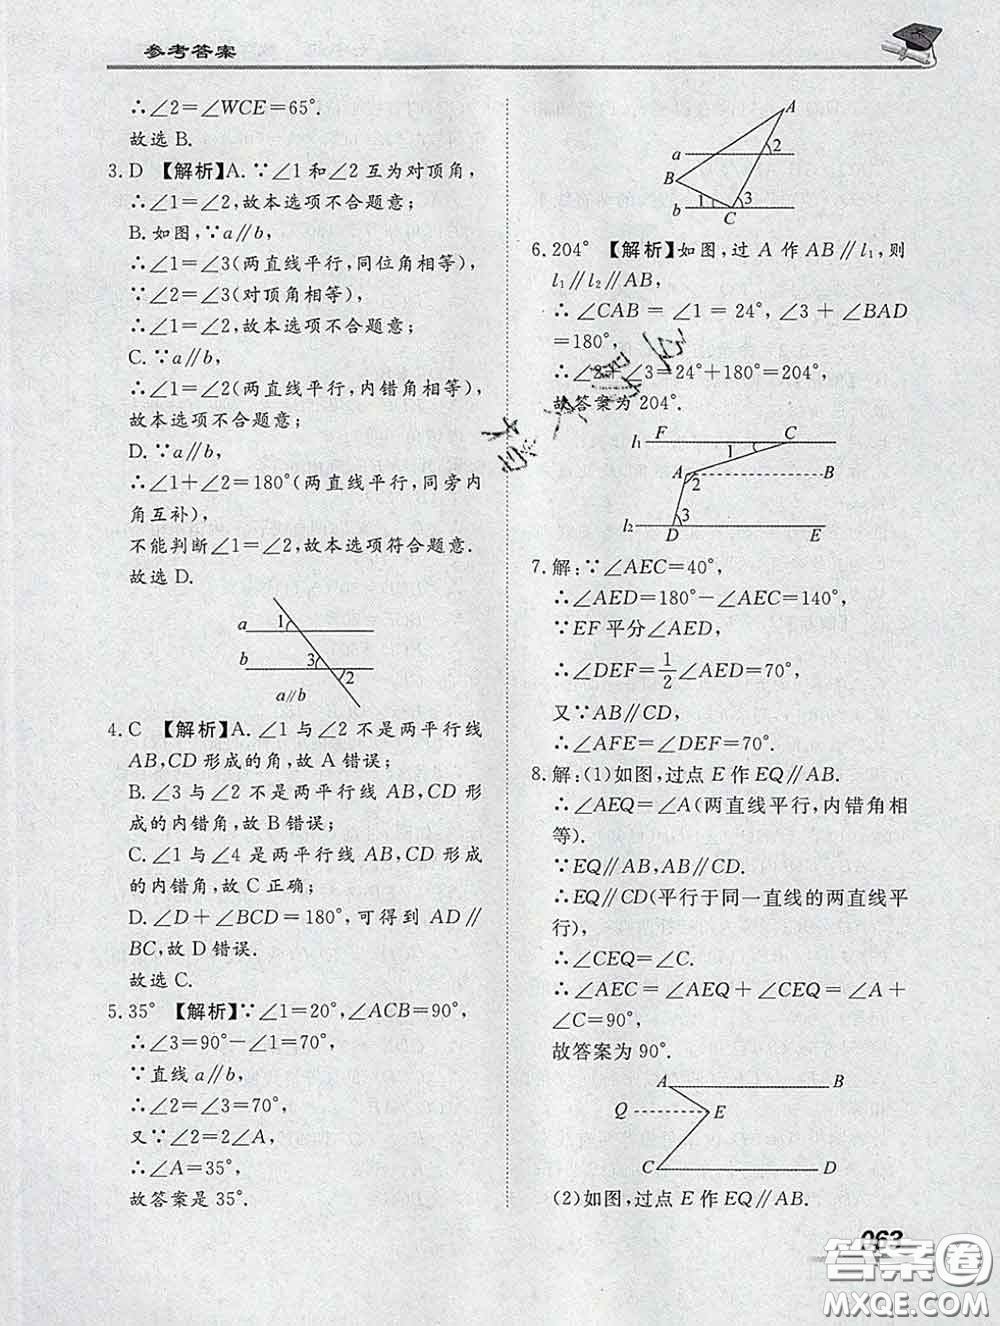 参考答案
∴∠2=∠WCE=65°.
故选 B.
3. D 【解析】A. ∵∠1和∠2互为对顶角,
∴∠1=∠2,故本选项不合题意;
B. 如图,∵a∥b,
∴∠1=∠3(两直线平行,同位角相等),
∵∠2=∠3(对顶角相等),
∴∠1=∠2,故本选项不合题意;
C. ∵a∥b,
∴∠1=∠2(两直线平行,内错角相等),
故本选项不合题意;
D. ∵a∥b,
∴∠1+∠2=180°(两直线平行,同旁内
角互补),
不能判断∠1=∠2,故本选项符合题意.
故选 D.
a 1
b 3 2
a∥b
4. C 【解析】A. ∠1与∠2不是两平行线
AB,CD形成的角,故A错误;
B. ∠3与∠2不是两平行线AB,CD形
成的内错角,故B错误;
C. ∠1与∠4是两平行线AB,CD形成
的内错角,故C正确;
D. ∠D+∠BCD=180°,可得到AD∥
BC,故D错误.
故选 C.
5. 35° 【解析】∵∠1=20°,∠ACB=90°,
∴∠3=90°-∠1=70°,
∵直线a∥b,
∴∠2=∠3=70°,
又∵∠2=2∠A,
∴∠A=35°,
故答案是35°.
A
a 2
B
b 1 3
C
6. 204° 【解析】如图,过A作AB∥l₁,则
l₁∥l₂∥AB,
∴∠CAB=∠1=24°,∠3+∠BAD
=180°,
∴∠2+∠3=24°+180°=204°,
故答案为204°.
l₁ F C
1
A 2 B
3
l₂ D E
7. 解:∵∠AEC=40°,
∴∠AED=180°-∠AEC=140°,
∵EF平分∠AED,
∴∠DEF=1/2∠AED=70°,
又∵AB∥CD,
∴∠AFE=∠DEF=70°.
8. 解:(1)如图,过点E作EQ∥AB.
∴∠AEQ=∠A(两直线平行,内错角相
等).
∵EQ∥AB,AB∥CD.
∴EQ∥CD(平行于同一直线的两直线平
行),
∴∠CEQ=∠C.
∴∠AEC=∠AEQ+∠CEQ=∠A+
∠C=90°,
故答案为90°.
A B
Q E
C D
(2)如图,过点E作EQ∥AB.
063
答案圈
MXQE.COM